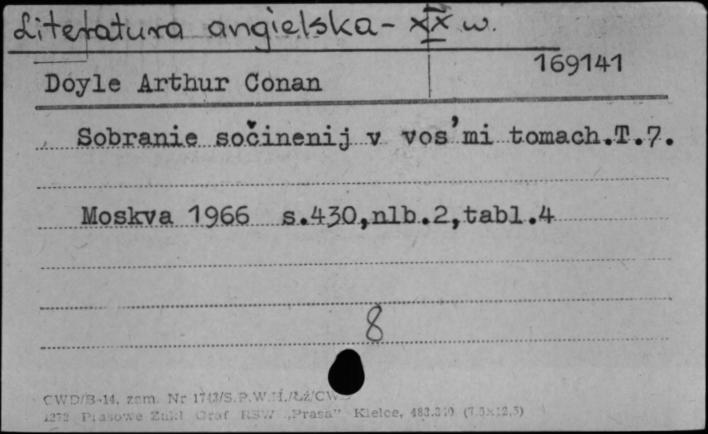 Literatura angielska - XX w.
169141
Doyle Arthur Conan
Sobranie sočinenij v vos'mi tomach.T.7.
Moskva 1966 s.430,nlb.2,tabl.4
8
CWD/B-14, zam. Nr 1743/S.P.W.H./Łż/CW
Prasowe Zakł Graf RSW „Prasa” Kielce,